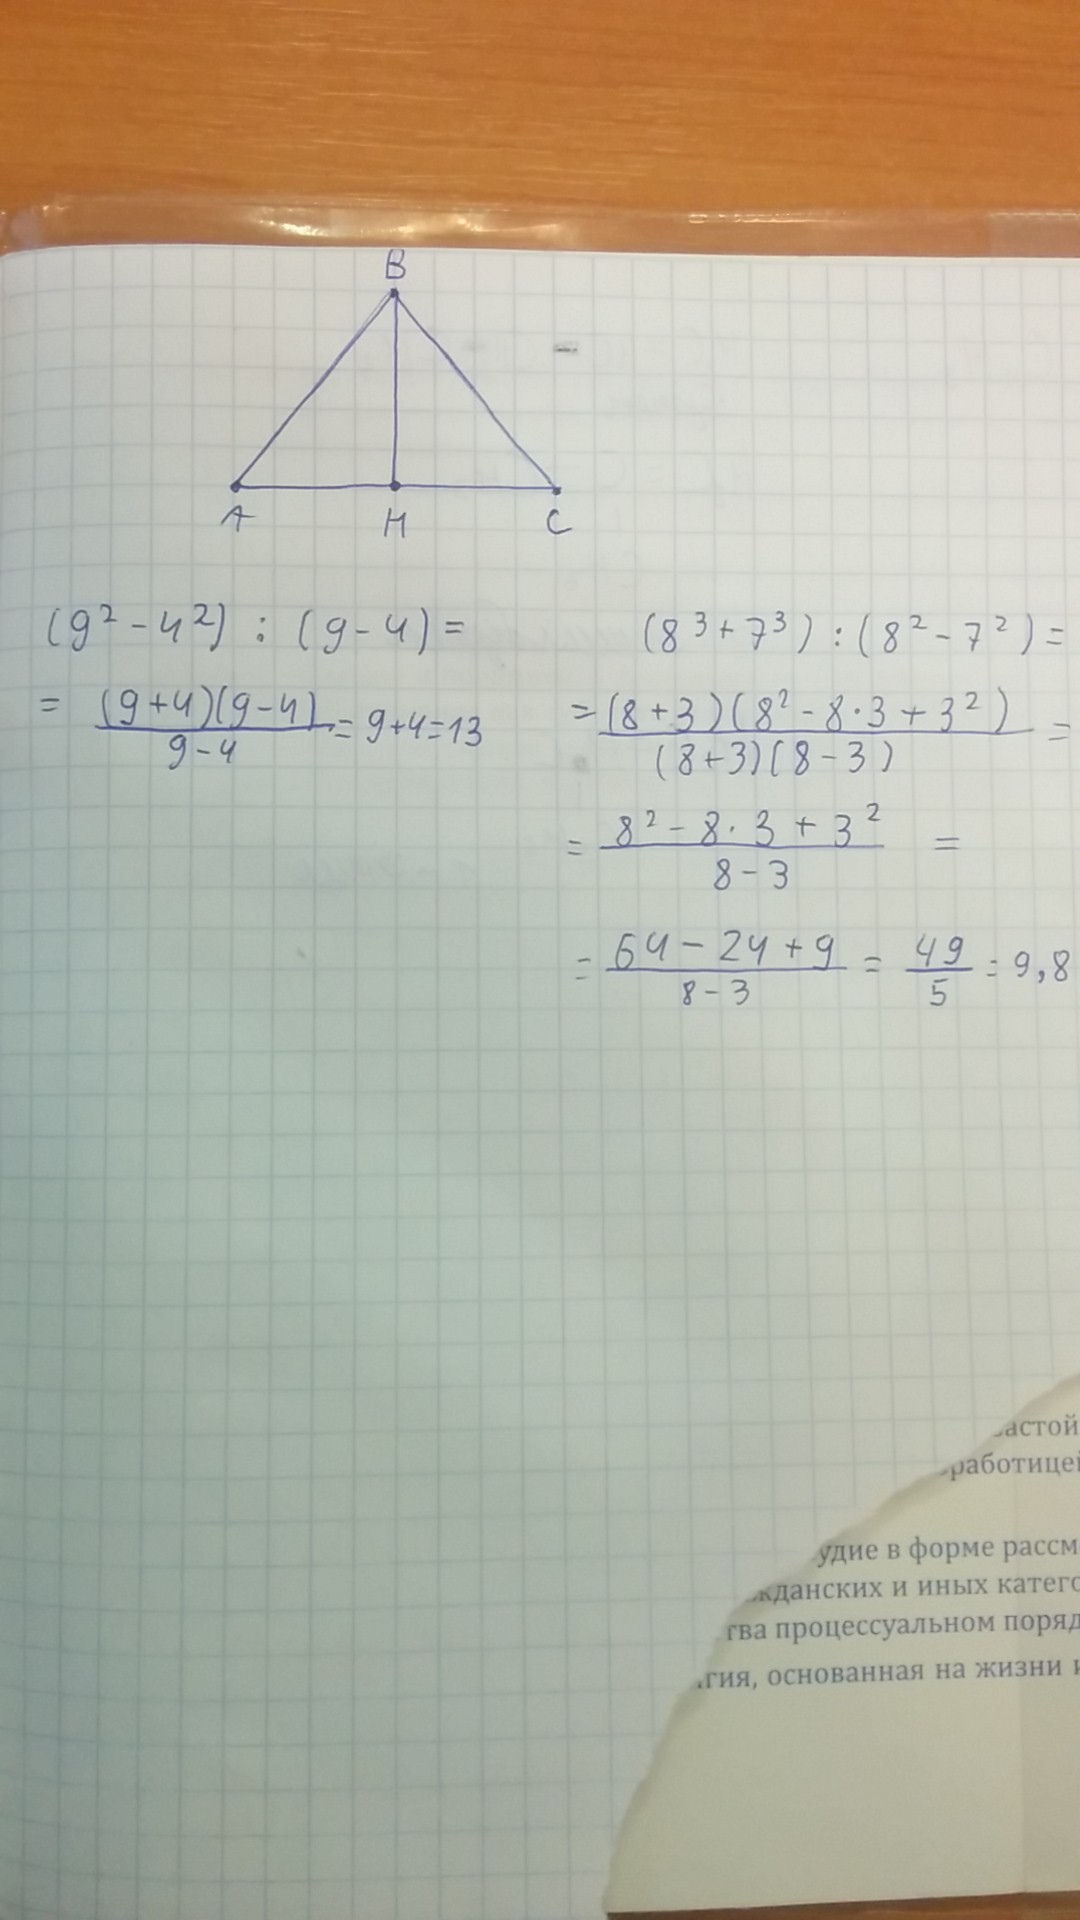 B
A H C
(9² - 4²) : (9 - 4) =
= (9+4)(9-4) / 9-4 = 9+4=13
(8³ + 7³) : (8² - 7²) =
= (8+3)(8² - 8·3 + 3²) / (8+3)(8-3) =
= 8² - 8·3 + 3² / 8-3 =
= 64 - 24 + 9 / 8-3 = 49 / 5 = 9,8
астой
работицей
удие в форме рассм
жданских и иных катего
тва процессуальном поряд
гия, основанная на жизни и